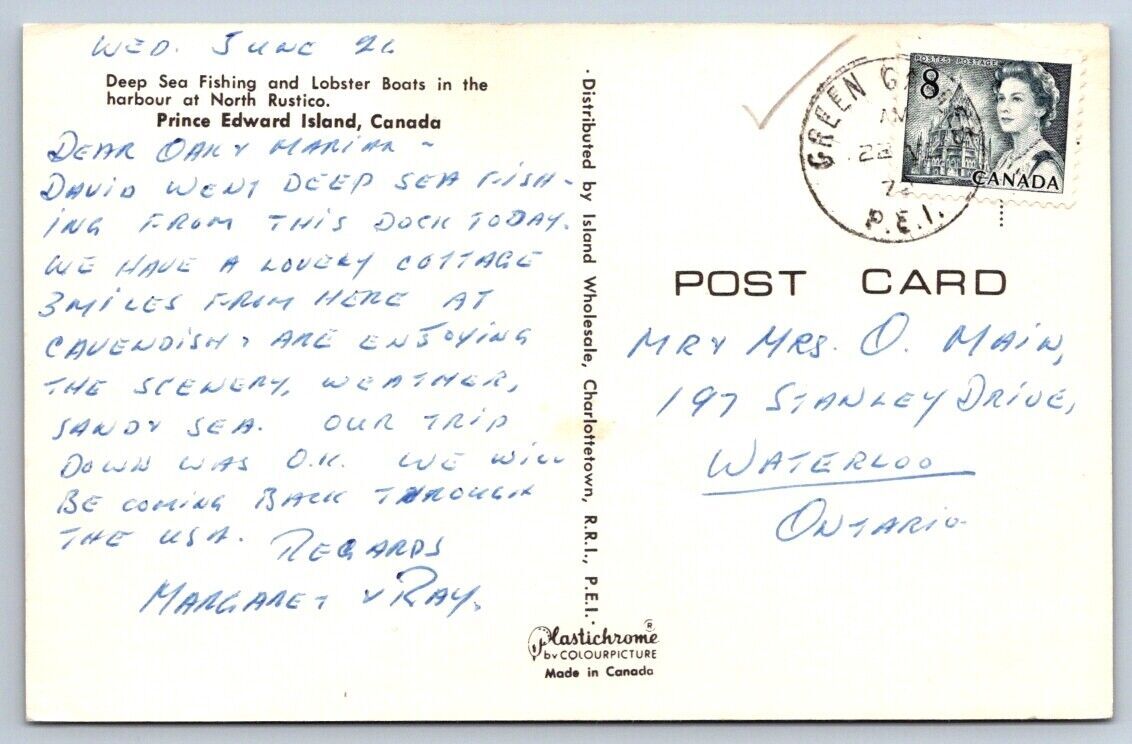 WED. JUNE 21
Deep Sea Fishing and Lobster Boats in the
harbour at North Rustico.
Prince Edward Island, Canada
DEAR & MARIAN ~
DAVID WENT DEEP SEA FISH-
ING FROM THIS DOCK TODAY.
WE HAVE A LOVELY COTTAGE
3 MILES FROM HERE AT
CAVENDISH & ARE ENJOYING
THE SCENERY, WEATHER,
SAND & SEA. OUR TRIP
DOWN WAS O.K. WE WILL
BE COMING BACK THROUGH
THE USA.
REGARDS
MARGARET & RAY.
· Distributed by Island Wholesale, Charlottetown, R.R.I., P.E.I. ·
Plastichrome ®
by COLOURPICTURE
Made in Canada
GREEN
AM
22
P.E.I.
POSTES POSTAGE
8
CANADA
POST CARD
MR & MRS. O. MAIN,
197 STANLEY DRIVE,
WATERLOO
ONTARIO